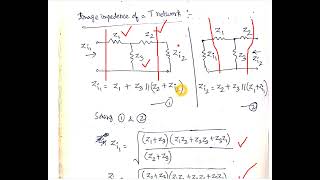 Image impedence of a T network :-
Z1 Z2
Z3
Zi1 Zi2
Z1 Z2
Z3 Zi2
Zi1 = Z1 + Z3 || (Z2 + Zi2) — ①
Zi2 = Z2 + Z3 || (Z1 + Zi1) — ②
Solving ① & ②
Zi1 = √((Z1+Z3)(Z1Z2+Z2Z3+Z3Z1) / (Z2+Z3))